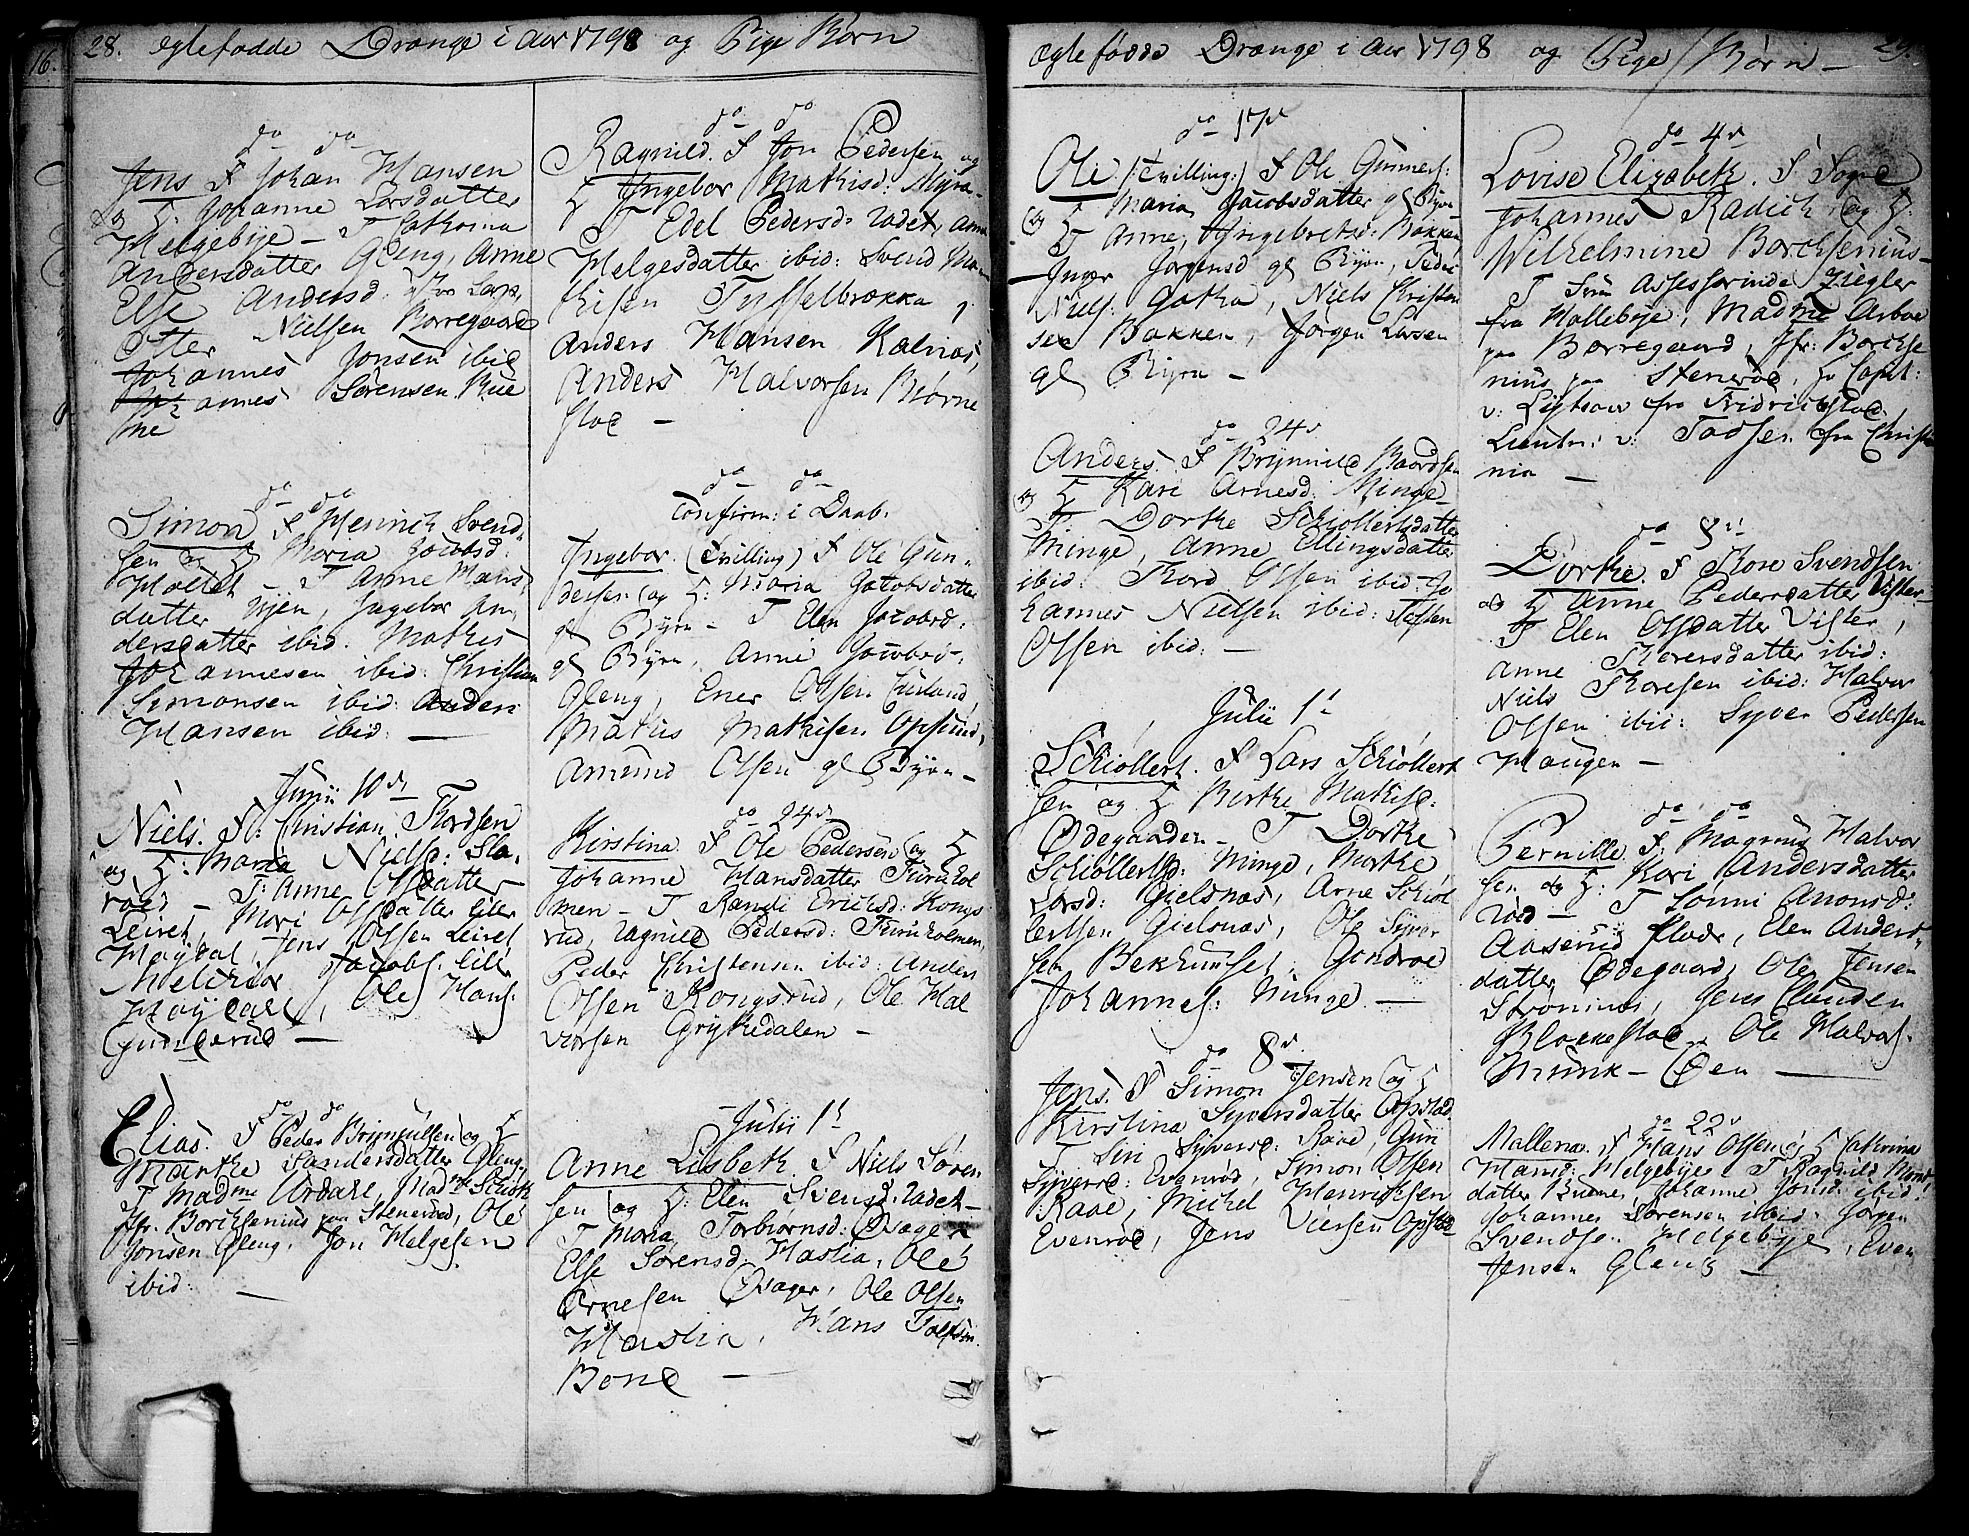 16.
28. egtefødde Drænge i Aar 1798 og Pige Børn
do do
Jens F Johan Hansen
og H: Johanne Larsdatter
Helgebye - F Cathrina
Andersdatter Gleng, Anne
Else Andersd:
Otter Nielsen Borregaard
Johannes Jonsen ibid
Johannes Sørensen Bue
ne
do do
Simon F Henrich Svend
sen og H Maria Jacobsd:
Holtet - F Anne Hans
datter Vijen, Ingebor An,
dersdatter ibid. Mathis
Johannesen ibid: Christian
Simonsen ibid: Anders
Hansen ibid: —
Junii 10de
Niels. F: Christian Thordsen
og H: Maria Nielsd: Sla,
röed - F: Anne Olsdatter
Leiret, Mari Olsdatter lille
Høydal, Jens Olsen Leiret
Melchior Jacobs: lille
Høydal, Ole Hans:
Gunderud —
do do
Elias. F Peder Brynjulsen og H
Marthe Sandersdatter Gleng,
F Madme Urdahl, Madme Schøth
Jfr. Borchsenius paa Stenerød, Ole
Jonsen Gleng. Jon Helgesen
ibid: —
do do
Ragnild. F Jon Pedersen og
H Ingebor Mathisd: Myra-
F Edel Pedersd: Rødet, Anna
Helgesdatter ibid: Svend Ma
thisen Tyffelbrækka,
Anders Hansen Kalnæs,
Anders Halvorsen Bjørne
stad —
do do
Confirm: i Daab.
Ingebor. (Tvilling) F Ole Gun-
dersen og H: Maria Jacobsdatter
gl Byen - F Elen Jacobsd:
gl Byen, Anne Jacobsd:
Gleng, Ener Olsen Lunland,
Mathis Mathisen Opsund,
Amund Olsen gl Byen —
do 24de
Kirstina F Ole Pedersen og H
Johanne Hansdatter Furuhol
men - F Randi Erichsd: Kongs
rud, Ragnild Pedersd: Furuholmen,
Peder Christensen ibid: Anders
Olsen Kongsrud, Ole Hal
vorsen Grydkedalen —
Julii 1ste
Anne Lisbeth. F Niels Søren
sen og H: Elen Svensd: Rødet -
F Maria Torbiørnsd: Øsager
Else Sørensd: Haslia, Ole
Arnesen Øsager, Ole Olsen
Haslia, Hans Tolfsen
Bone —
egtefødde Drænge i Aar 1798 og Pige Børn — 29.
do 17de
Ole (: Tvilling:) F Ole Gunners:
og H Maria Jacobsdatter gl Byen
F Anne Ingebretsd: Bakken
Inger Jørgensd gl Byen, Peder
Niels: Gotha, Niels Christen
sen Bakken, Jørgen Larsen
gl Byen —
do 24de
Anders. F Brynnild Baardsen
og H Kari Arnesd: Minge -
F: Dorthe Schiøllertsdatter
Minge, Anne Ellingsdatter
ibid: Thord Olsen ibid: Jo
hannes Nielsen ibid: Steffen
Olsen ibid: —
Julii 1ste
Schiøllert. F Lars Schiøllert
sen og H Birthe Mathisd:
Ødegaarden - F Dorthe
Schiøllertsd: Minge, Marthe
Larsd: Gielsnæs, Arne Schiøl
lertsen Gielsnæs, Ole Syver
sen Bekhuuset,
Johannes: Minge. —
do 8de
Jens. F Simon Jensen og H
Kirstina Syversdatter Opstad
F Siri Syversd: Raae, Gun
Syversd: Evenrød, Simon Olsen
Raae, Michel Henrichsen
Evenrød, Jens Iversen Opstad
do 4de
Lovise Elizabeth. F Sogne
Johannes Radich og H:
Wilhelmine Borchsenius -
F Frue Assessorinde Ziegler
fra Hollebye, Madme Arboe
paa Borregaard, Jfr: Borchse
nius paa Stenerød, Hr Capt:
v: Lytsow fra Fridrichstad,
Lieutn: v: Todsen fra Christia
nia —
do 8de
Dorthe. F Thore Svendsen
og H Anne Pedersdatter Vister -
F Elen Olsdatter Vister,
Anne Thoresdatter ibid:
Niels Thoresen ibid: Halvor
Olsen ibid: Syver Pedersen
Haugen —
do do
Pernille. F: Magnus Halvor
sen og H: Kari Andersdatter
Röed - F Sønni Amonsd:
Aaserud, Elen Anders,
datter Ødegaard, Ole Jensen
Strømnes, Jens
Blakkestad, Ole Halvors:
Munk - Øen —
do 22de
Mallena. F Hans Olsen og H Cathrina
Hansd: Helgebye - F Ragnild Mons
datter Buene, Johanne Jonsd: ibid:
Johannes Sørensen ibid: Jørgen
Svendsen Helgebye, Even
Jensen Gleng —